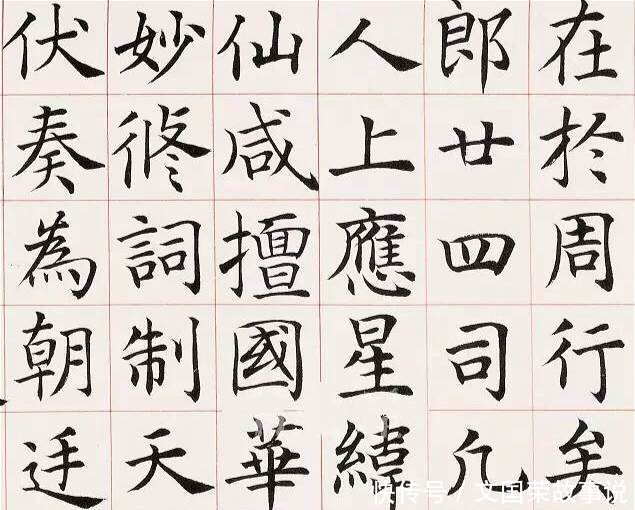 在於周行矣
郎廿四司凢
人上應星緯
仙咸擅國華
妙修詞制天
伏奏為朝迋
快传号/文国荣故事说